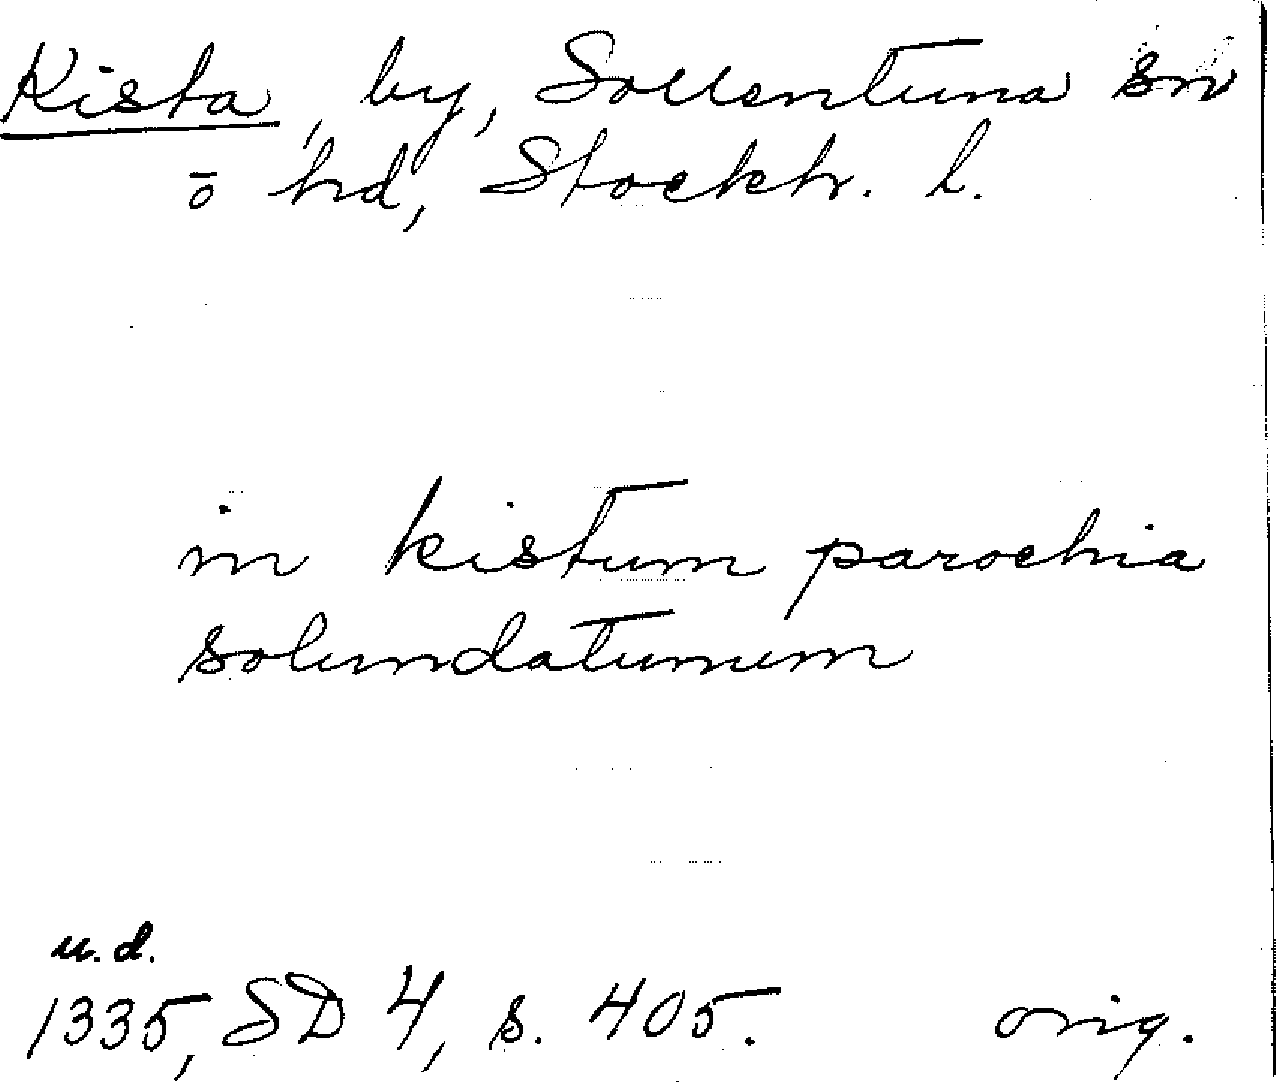 Kista, by, Sollentuna sn
ō hd, Stockh. l.
in kistum parochia
solendatunum
u.d.
1335, SD 4, s. 405. orig.